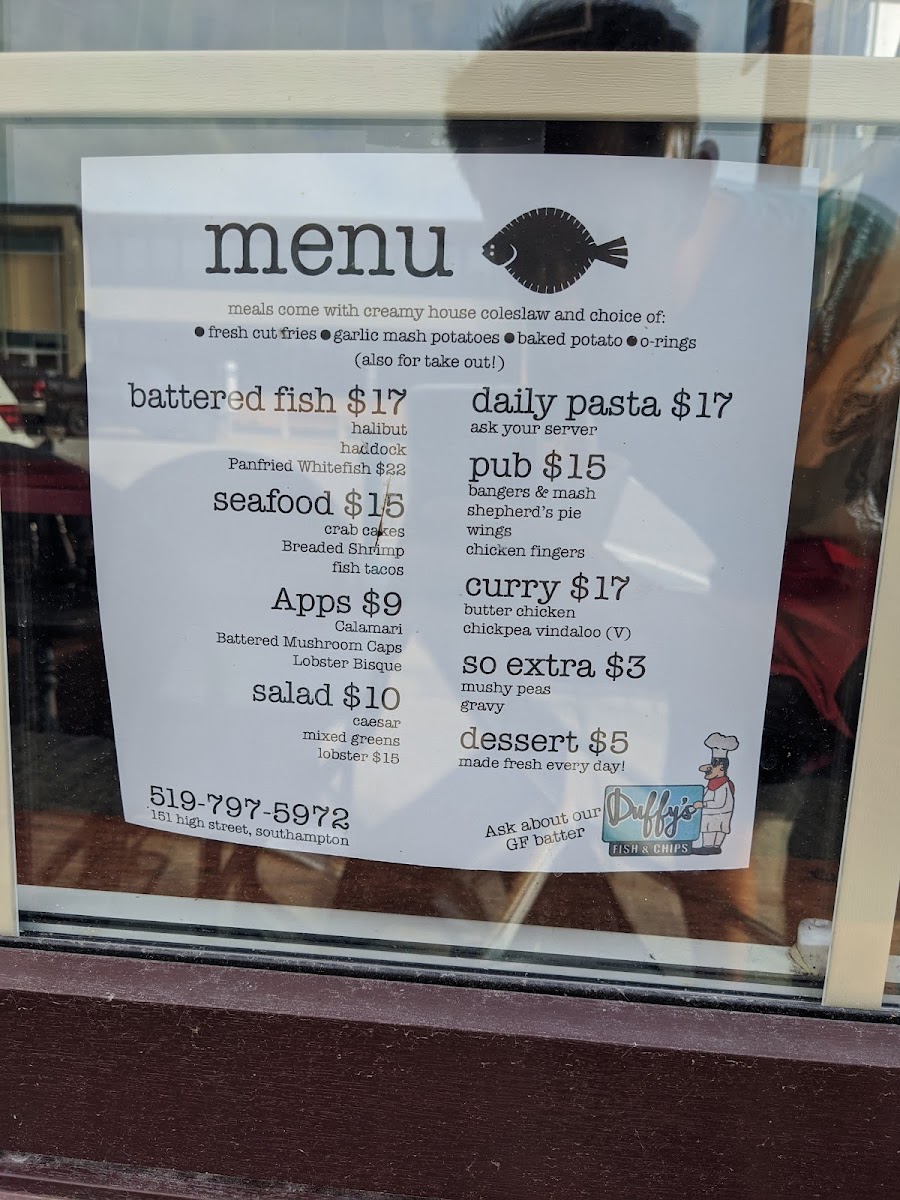 menu
meals come with creamy house coleslaw and choice of:
● fresh cut fries ● garlic mash potatoes ● baked potato ● o-rings
(also for take out!)
battered fish $17
halibut
haddock
Panfried Whitefish $22
seafood $15
crab cakes
Breaded Shrimp
fish tacos
Apps $9
Calamari
Battered Mushroom Caps
Lobster Bisque
salad $10
caesar
mixed greens
lobster $15
519-797-5972
151 high street, southampton
daily pasta $17
ask your server
pub $15
bangers & mash
shepherd's pie
wings
chicken fingers
curry $17
butter chicken
chickpea vindaloo (V)
so extra $3
mushy peas
gravy
dessert $5
made fresh every day!
Ask about our
GF batter
Duffy's
FISH & CHIPS